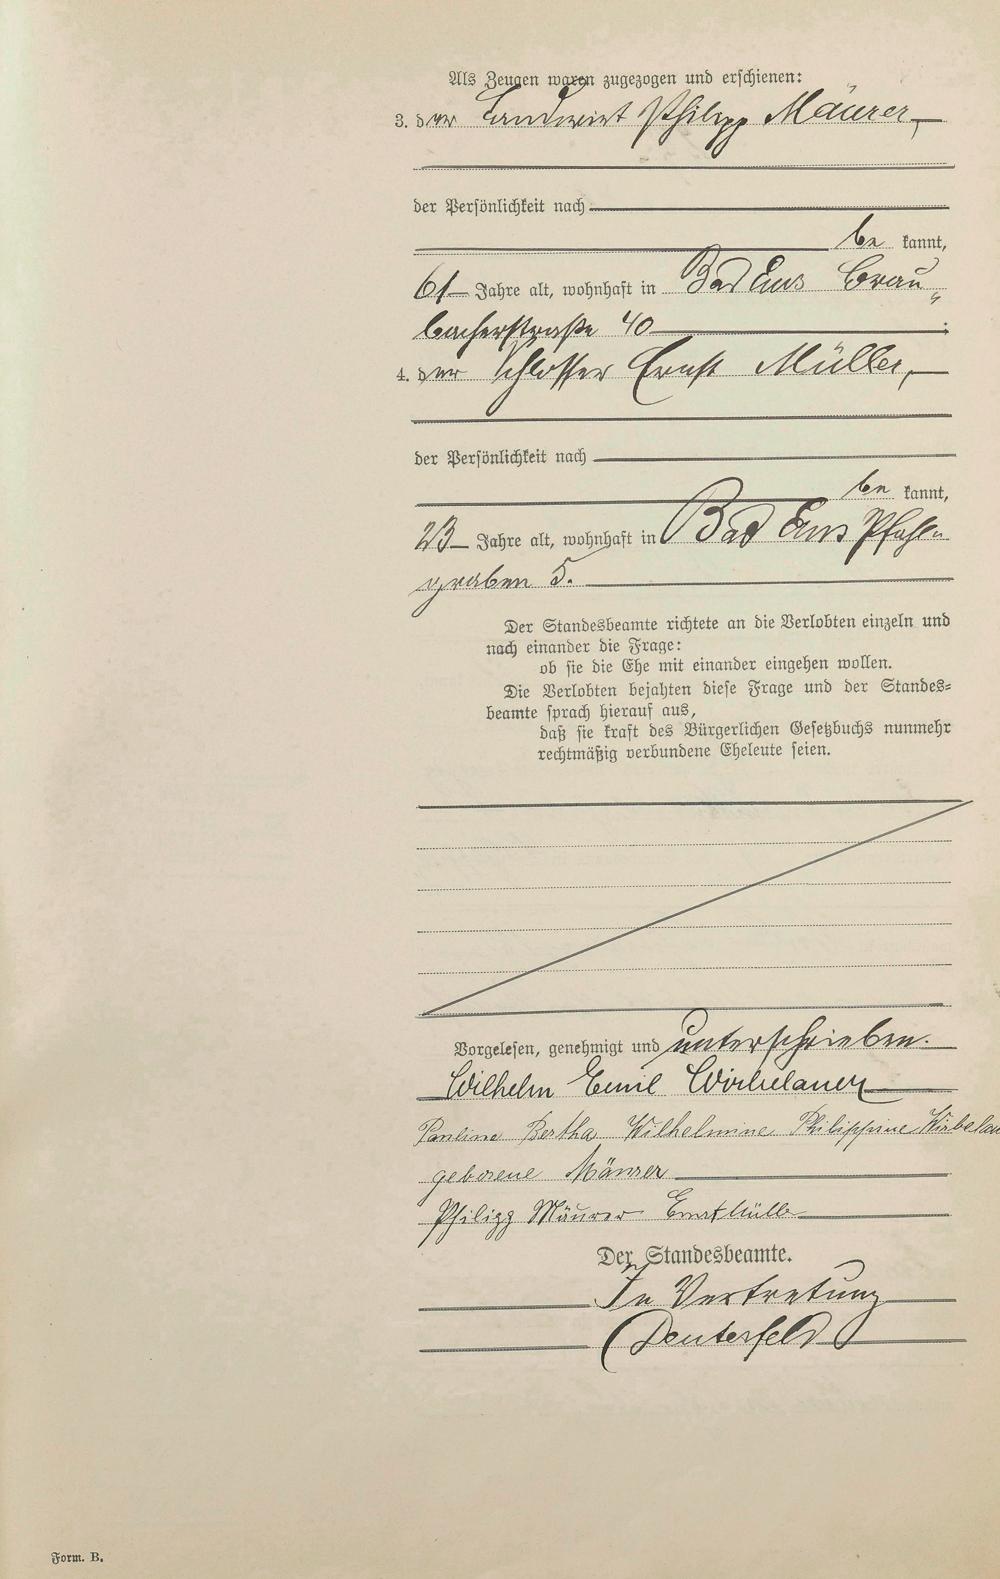 Als Zeugen waren zugezogen und erschienen:
3. der Landwirt Philipp Mäurer,
der Persönlichkeit nach
be kannt,
61 Jahre alt, wohnhaft in Bad Ems Brau„
bacherstraße 40.
4. der Schlosser Ernst Müller,
der Persönlichkeit nach
be kannt,
23 Jahre alt, wohnhaft in Bad Ems Pfahl„
graben 5.
Der Standesbeamte richtete an die Verlobten einzeln und
nach einander die Frage:
ob sie die Ehe mit einander eingehen wollen.
Die Verlobten bejahten diese Frage und der Standes=
beamte sprach hierauf aus,
daß sie kraft des Bürgerlichen Gesetzbuchs nunmehr
rechtmäßig verbundene Eheleute seien.
Vorgelesen, genehmigt und unterschrieben.
Wilhelm Emil Wirbelauer
Pauline Bertha Wilhelmine Philippine Wirbelau
geborene Mäurer
Philipp Mäurer Ernst Müller
Der Standesbeamte.
In Vertretung
Deuterfeld
Form. B.